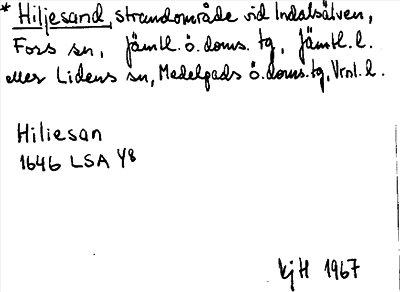 * Hiljesand, strandområde vid Indalsälven,
Fors sn, Jämtl. ö. doms. tg, Jämtl. l.
eller Lidens sn, Medelpads ö. doms. tg, Vrnl. l.
Hiliesan
1646 LSA Y8
kjH 1967